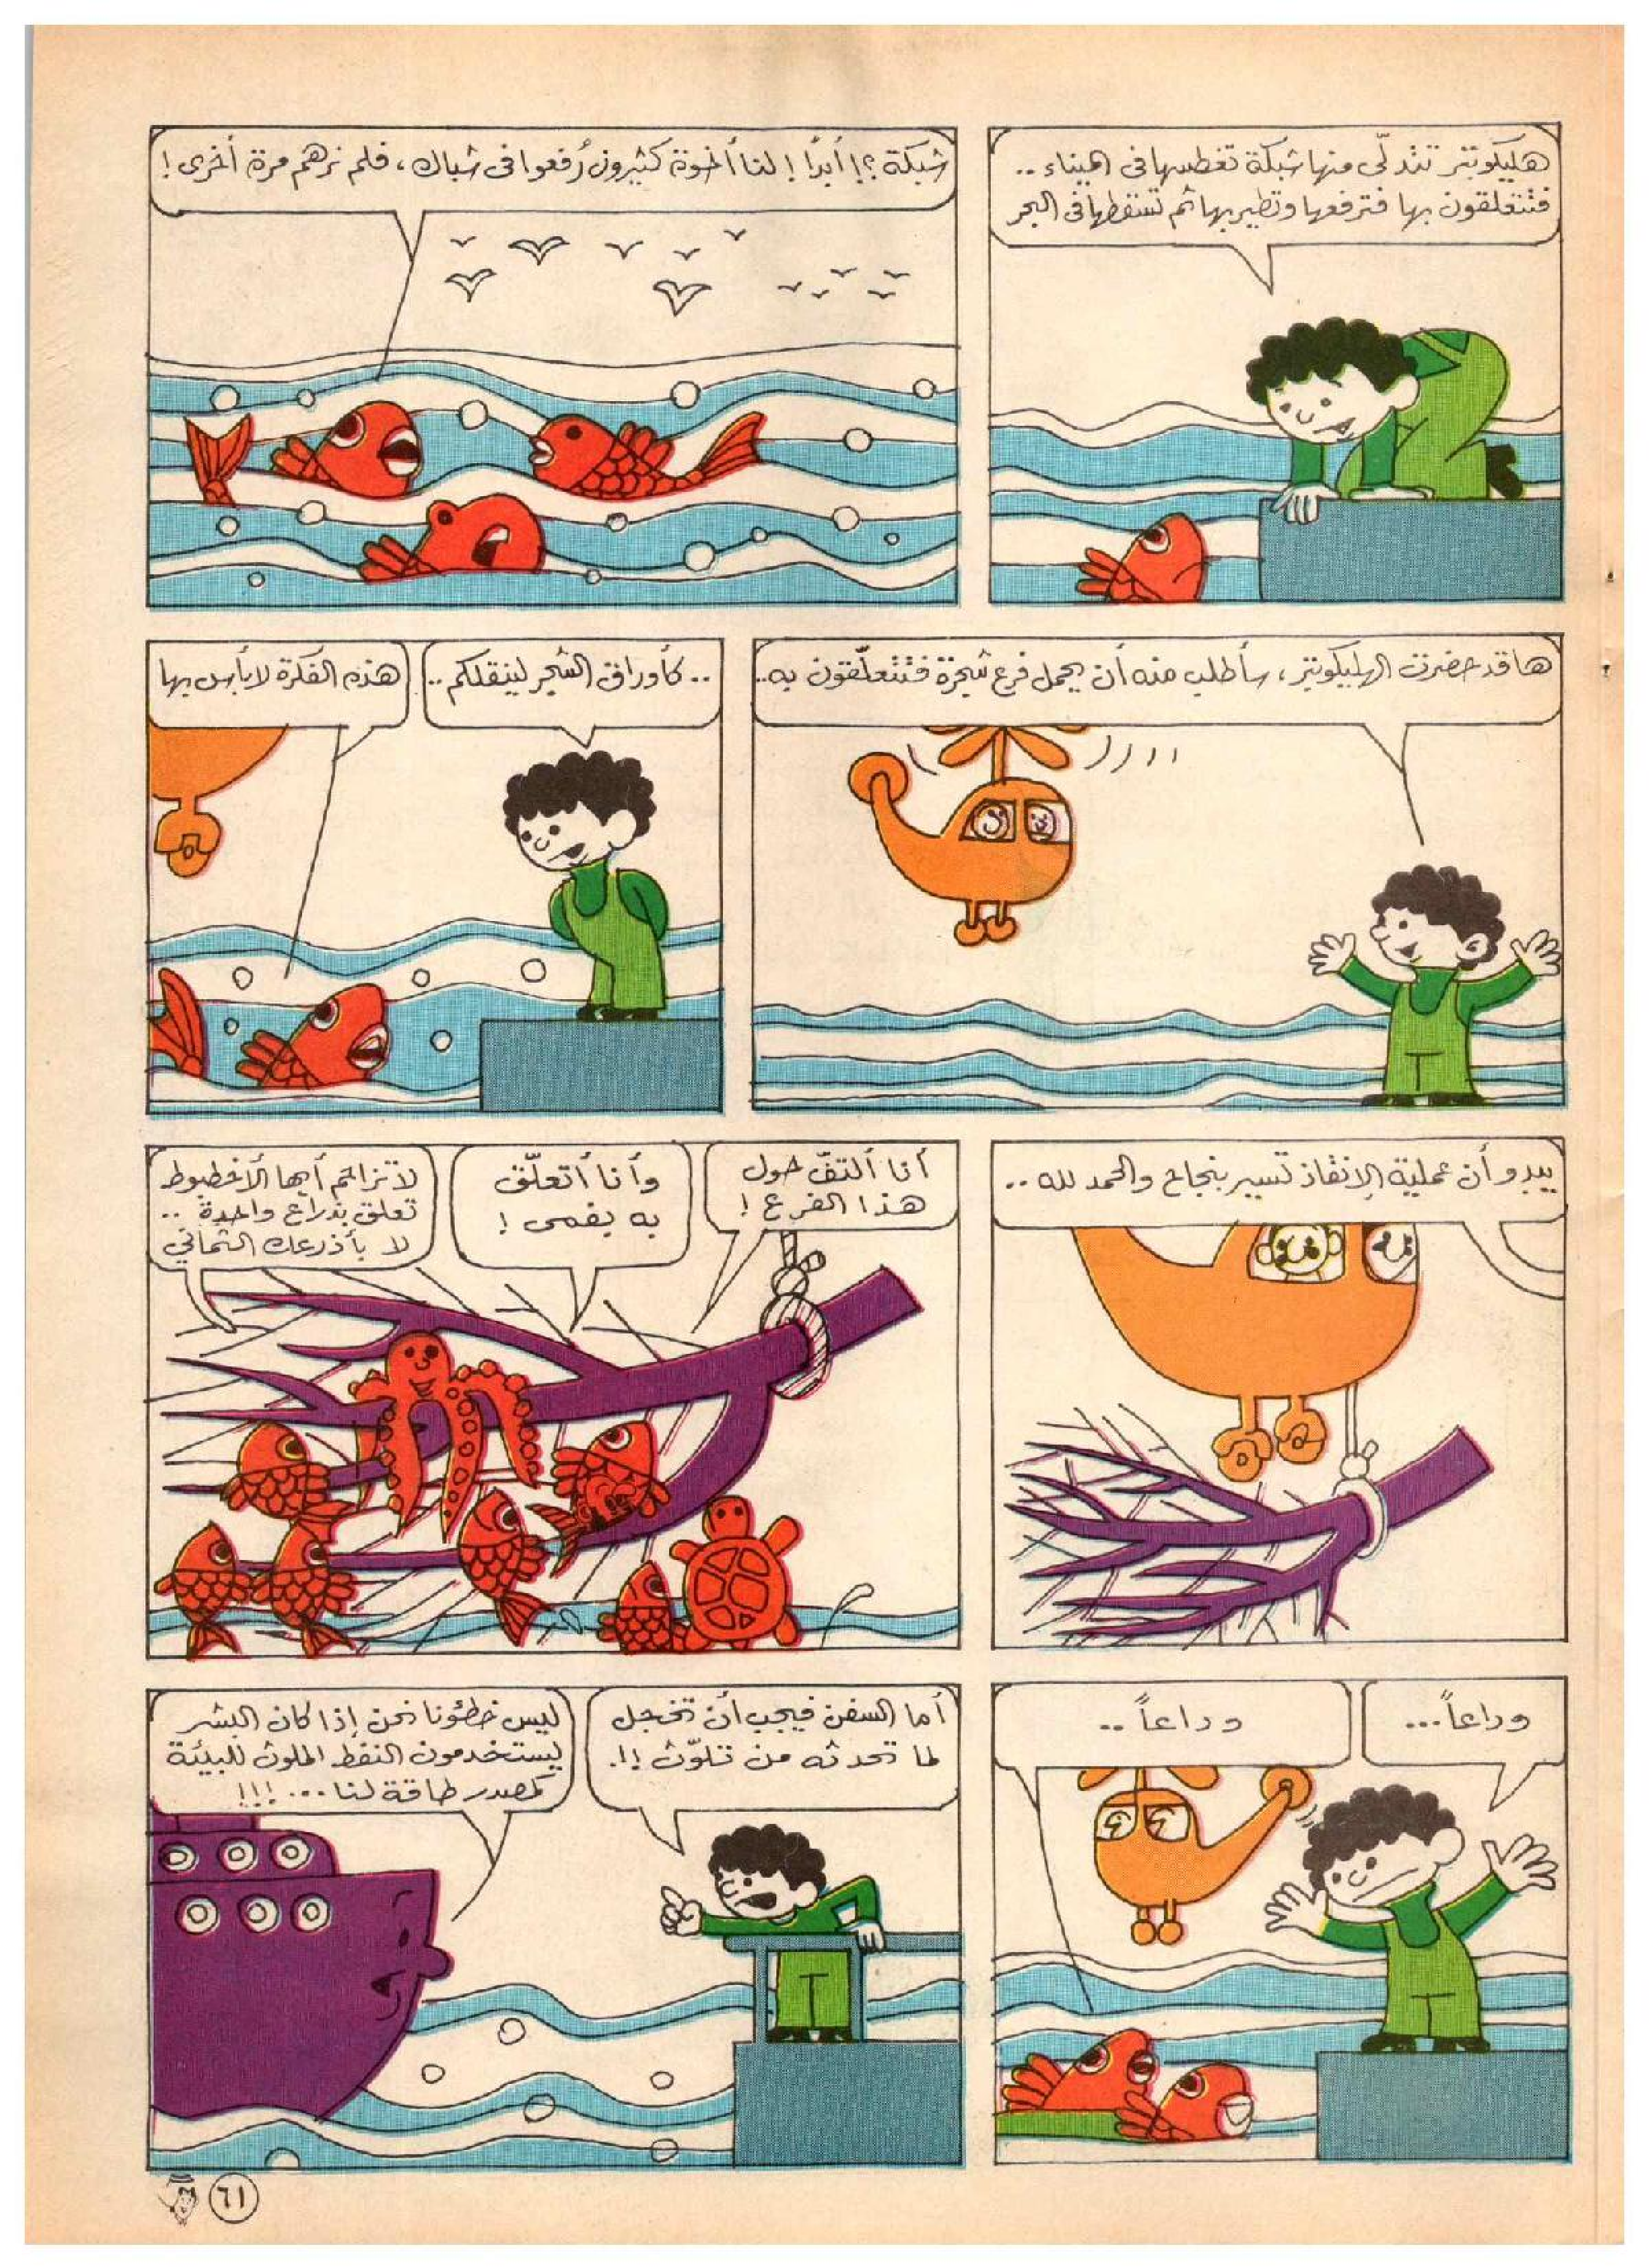 هليكوبتر تتدلّى منها شبكة تغطسها في الميناء ..
فتتعلقون بها فترفعها وتطير بها ثم تسقطها في البحر
شبكة ؟! أبدًا ! لنا أخوة كثيرون رُفعوا في شباك ، فلم نرهم مرة أخرى !
ها قد حضرت الهليكوبتر ، سأطلب منه أن يحمل فرع شجرة فتتعلّقون به..
.. كأوراق الشجر لينقلكم ..
هذه الفكرة لا بأس بها
يبدو أن عملية الإنقاذ تسير بنجاح والحمد لله ..
أنا ألتفّ حول
هذا الفرع !
وأنا أتعلّق
به بفمى !
لا تزاحم أيها الأخطبوط
تعلق بذراع واحدة ..
لا بأذرعك الثماني
وداعاً ...
وداعاً ..
أما السفن فيجب أن تخجل
لما تحدثه من تلوّث !!.
ليس خطئونا نحن إذا كان البشر
يستخدمون النفط الملوث للبيئة
كمصدر طاقة لنا ... !!!
٦١